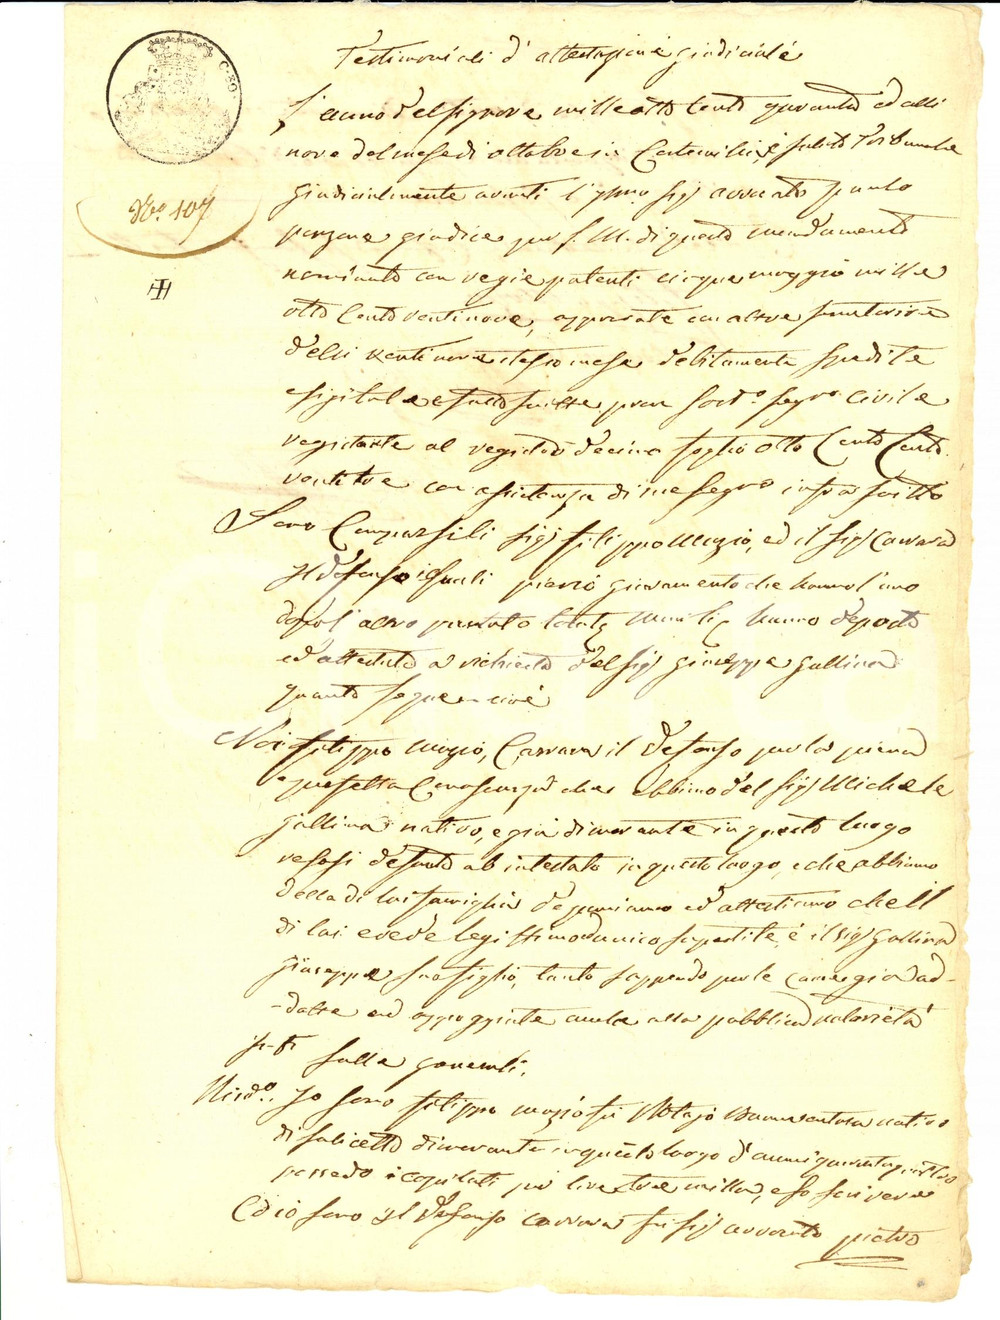 Testimoniali d'attestazione giudiciale
C. 80
L'anno del Signore mille otto cento quaranta ed alli
nove del mese di ottobre in e sul suo Tribunale
giudicialmente avanti l'Ill.mo Sig.r avvocato Paolo
giudice per S. M. di questo mandamento
N.o 107
nominato con regie patenti cinque maggio mille
otto cento ventinove, con altre senatorie
delli venti nove stesso mese debitamente spedite
sigillate e sottoscritte civile
registrate al registro decimo foglio otto cento cento
ventitre con assistenza di me Segr.o infrascritto
Sono comparsi li Sig.ri Filippo Muzio, ed il Sig.r Carrara
Ildefonso i quali previo giuramento che hanno l'uno
dopo l'altro prestato hanno deposto
ed attestato a richiesta del Sig.r Giuseppe Gallina
quanto segue cioè
Noi Filippo Muzio, Carrara Ildefonso per la piena
e perfetta conoscenza che ebbimo del Sig.r Michele
Gallina nativo, e già dimorante in questo luogo
resosi defunto ab intestato in questo luogo, e che abbiamo
della di lui famiglia deponiamo ed attestiamo che il
di lui erede legittimo ed unico superstite, è il Sig.r Gallina
Giuseppe suo figlio, tanto sappendo per le cause già ad-
-dotte ed appoggiate anche alla pubblica notorietà
Sulle generali.
Io sono Filippo Muzio fu Notajo Bonaventura nativo
di Saliceto dimorante in questo luogo d'anni quaranta
possedo in capitali più lire tre milla, e so scrivere
Ed io sono Ildefonso Carrara fu Sig.r avvocato Pietro